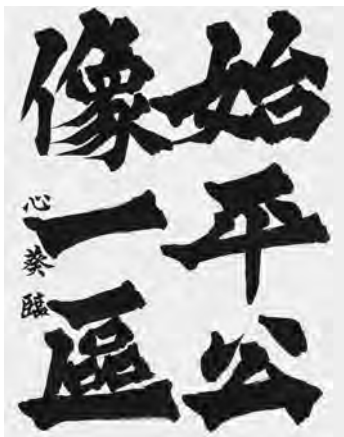 始平公
像一區
心葵臨